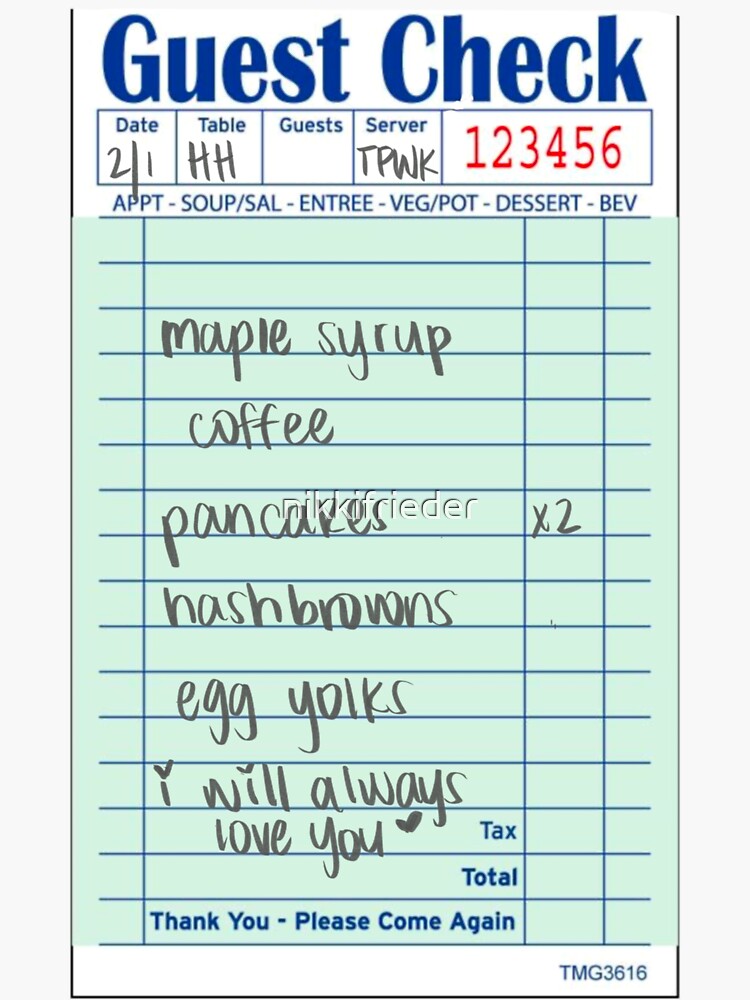 Guest Check
Date Table Guests Server
2/1 HH TPWK 123456
APPT - SOUP/SAL - ENTREE - VEG/POT - DESSERT - BEV
maple syrup
coffee
pancakes x2
nikkifrieder
hashbrowns
egg yolks
i will always
love you
Tax
Total
Thank You - Please Come Again
TMG3616